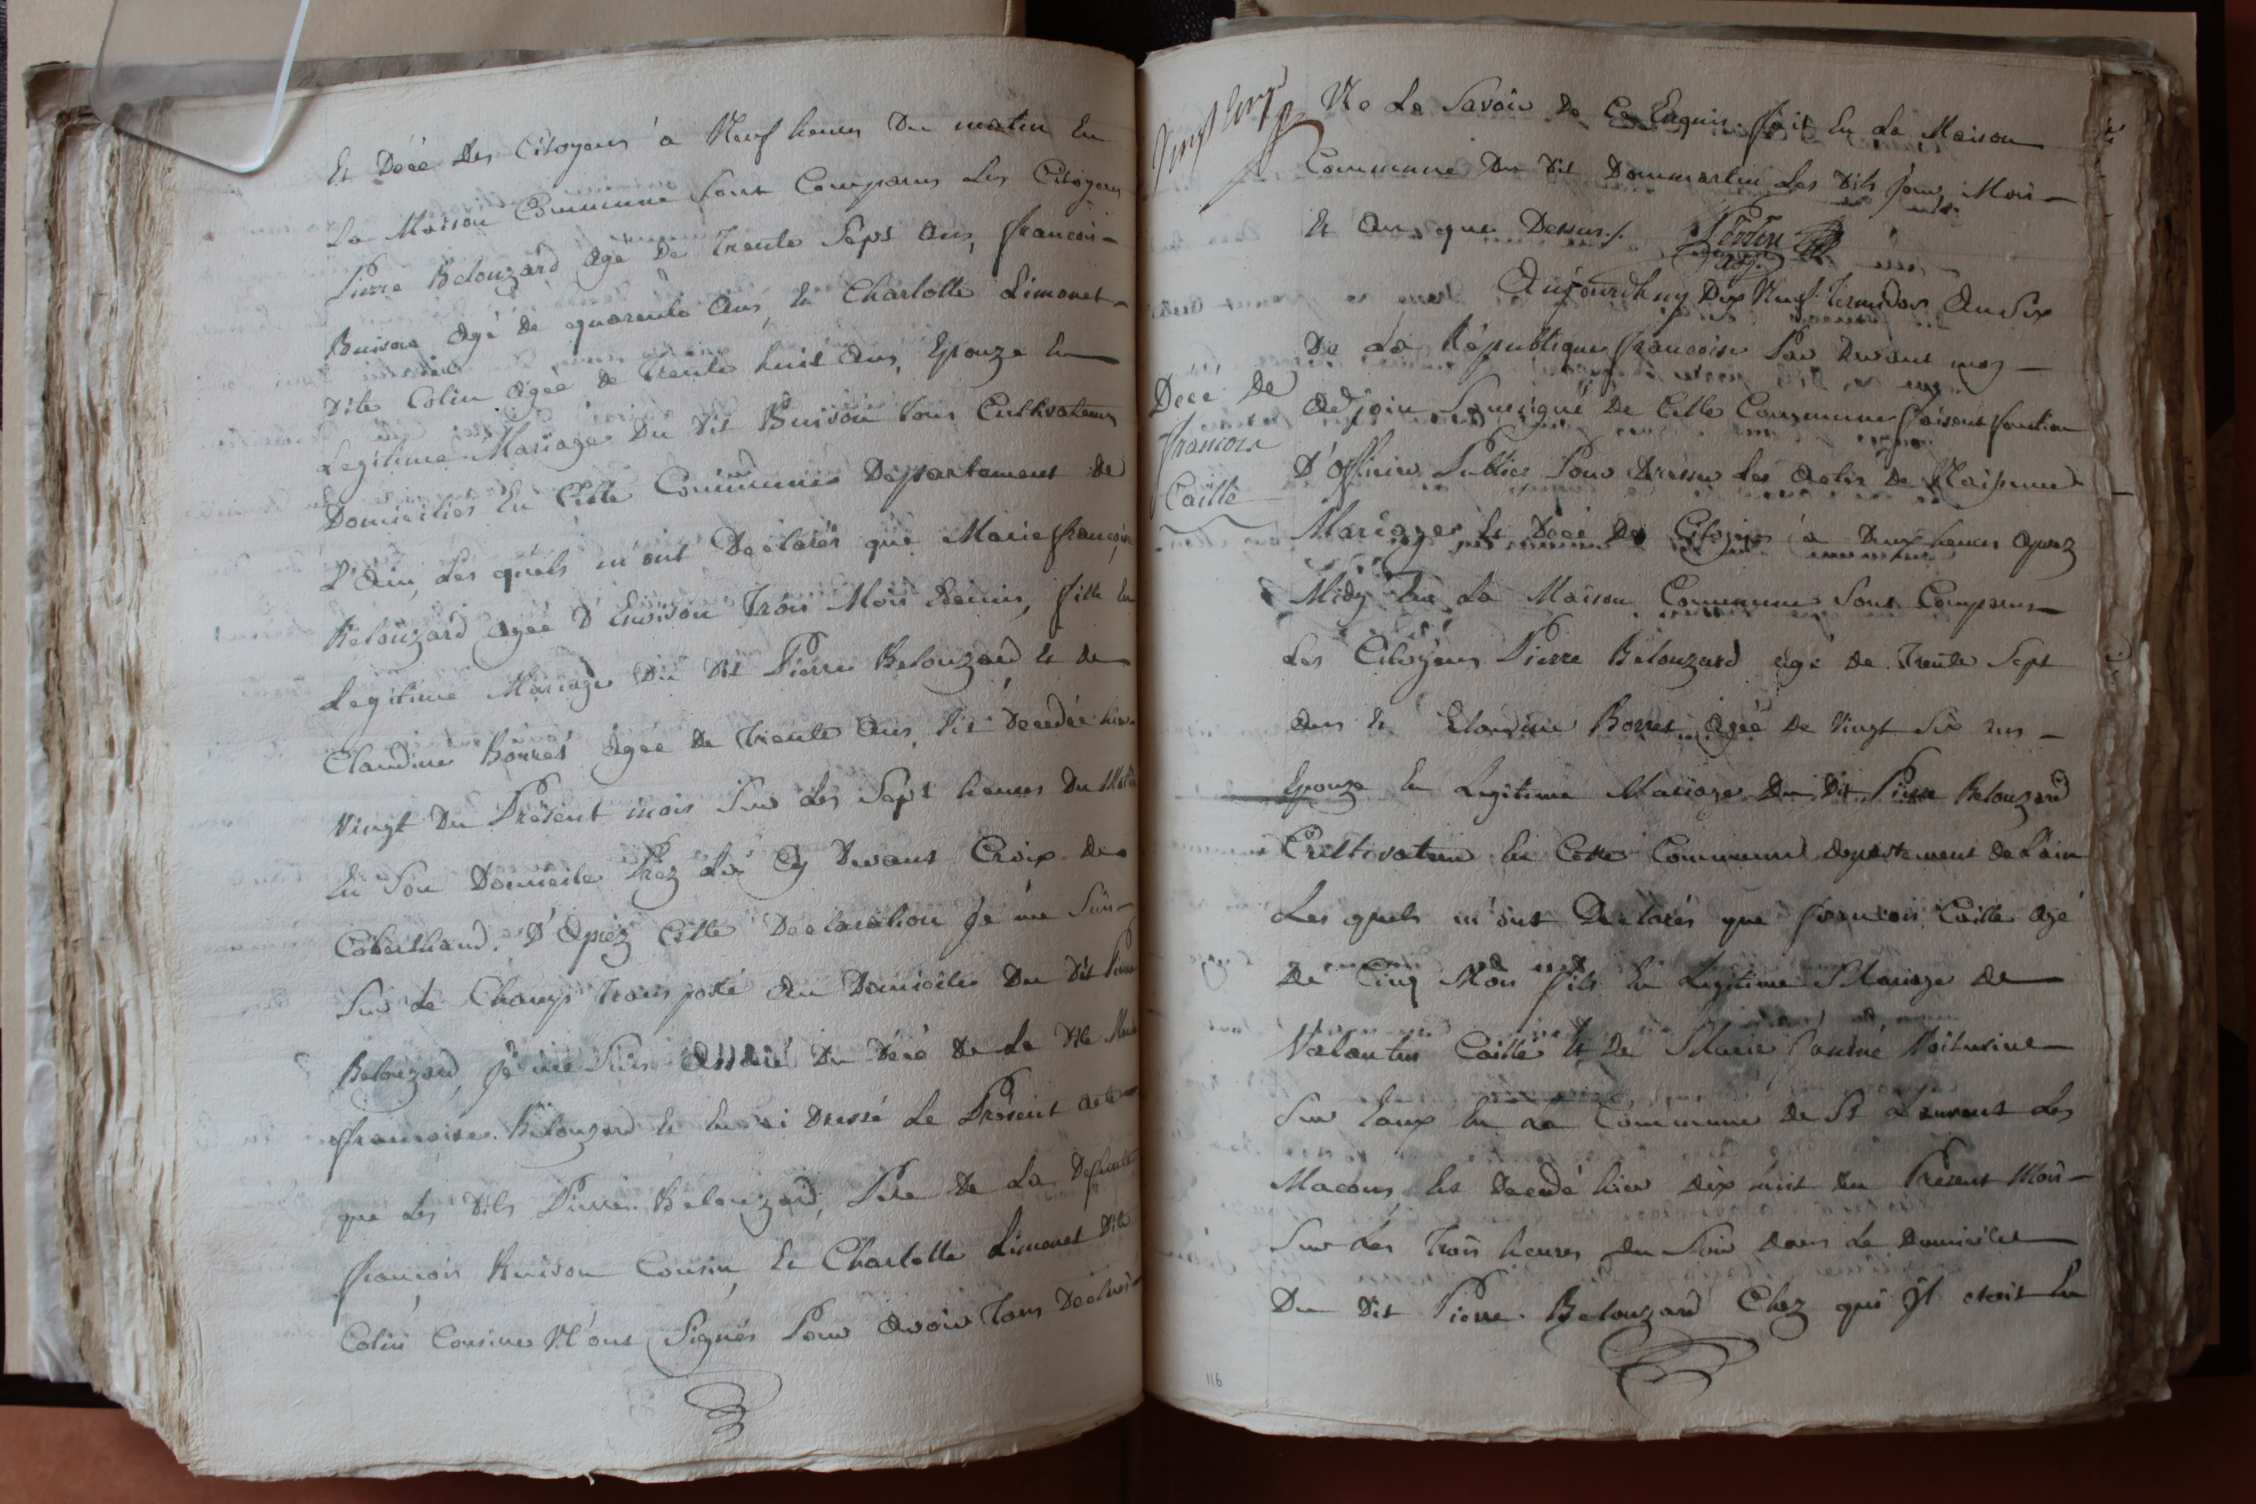 Et Décé des Citoyens á Neuf heures Du matin En
La Maison Commune Sont Comparus Les Citoyens
Pierre Belouzard agé De trente Sept ans, francois
Buison agé de quarente ans, Et Charlotte Limonet
dite Colin agée de trente huit ans, Epouze En
Legitime Mariage Du dit Buison tous Cultivateurs
Domiciliés En Cette Commune Département de
L'Ain, Les quels m'ont Declarés que Marie françoise
Belouzard agée D'Environ trois Mois Demis, fille En
Legitime Mariage Du dit Pierre Belouzard et de
Claudine Borret agée De trente ans, Est Decedée hier
Vingt Du Présent mois Sur Les Sept heures Du Matin
En Son Domicile Prez La Cy Devant Croix de
Coberthoud. D'Aprez Cette Declaration Je me Suis
Sur Le Champ transporté au Domicile Du dit Pierre
Belouzard, Je me Suis Assuré Du Décé De La dite Marie
françoise Belouzard Et En ai Dressé Le Présent acte
que Les dits Pierre Belouzard, Pere De La Defunte
françois Buison Cousin, Et Charlotte Limonet dite
Colin Cousine N'ont Signés Pour avoir tous Declaré
Ne Le Savoir De Ce Enquis. fait En La Maison
Commune Du dit Dommartin Les dits jour, Mois
Et An que Dessus./.
adj.
Aujourdhuy Dix Neuf thermidor An Six
De La République françoise Par Devant moy
Décé De
francois
Caille
adjoin Soussigné De Cette Commune faisant fonction
D'Officier Public Pour Dresser Les Actes De Naissance
Mariages Et Décé Des Citoyens á Deux heures aprez
Midy En La Maison Commune Sont Comparus
Les Citoyens Pierre Belouzard agé De trente Sept
ans Et Claudine Borret agée De Vingt Six ans
Epouze En Legitime Mariage Du Dit Pierre Belouzard
Cultivateur En Cette Commune departement de L'ain
Les quels m'ont Declarés que francois Caille agé
De Cinq Mois fils En Legitime Mariage de
Valantin Caille Et De Marie
Sur En La Commune de St Laurent Les
Macons, Est Decedé hier dix huit du Présent Mois
Sur Les trois heures du Soir dans Le Domicile
Du Dit Pierre Belouzard Chez qui Jl etoit En
116